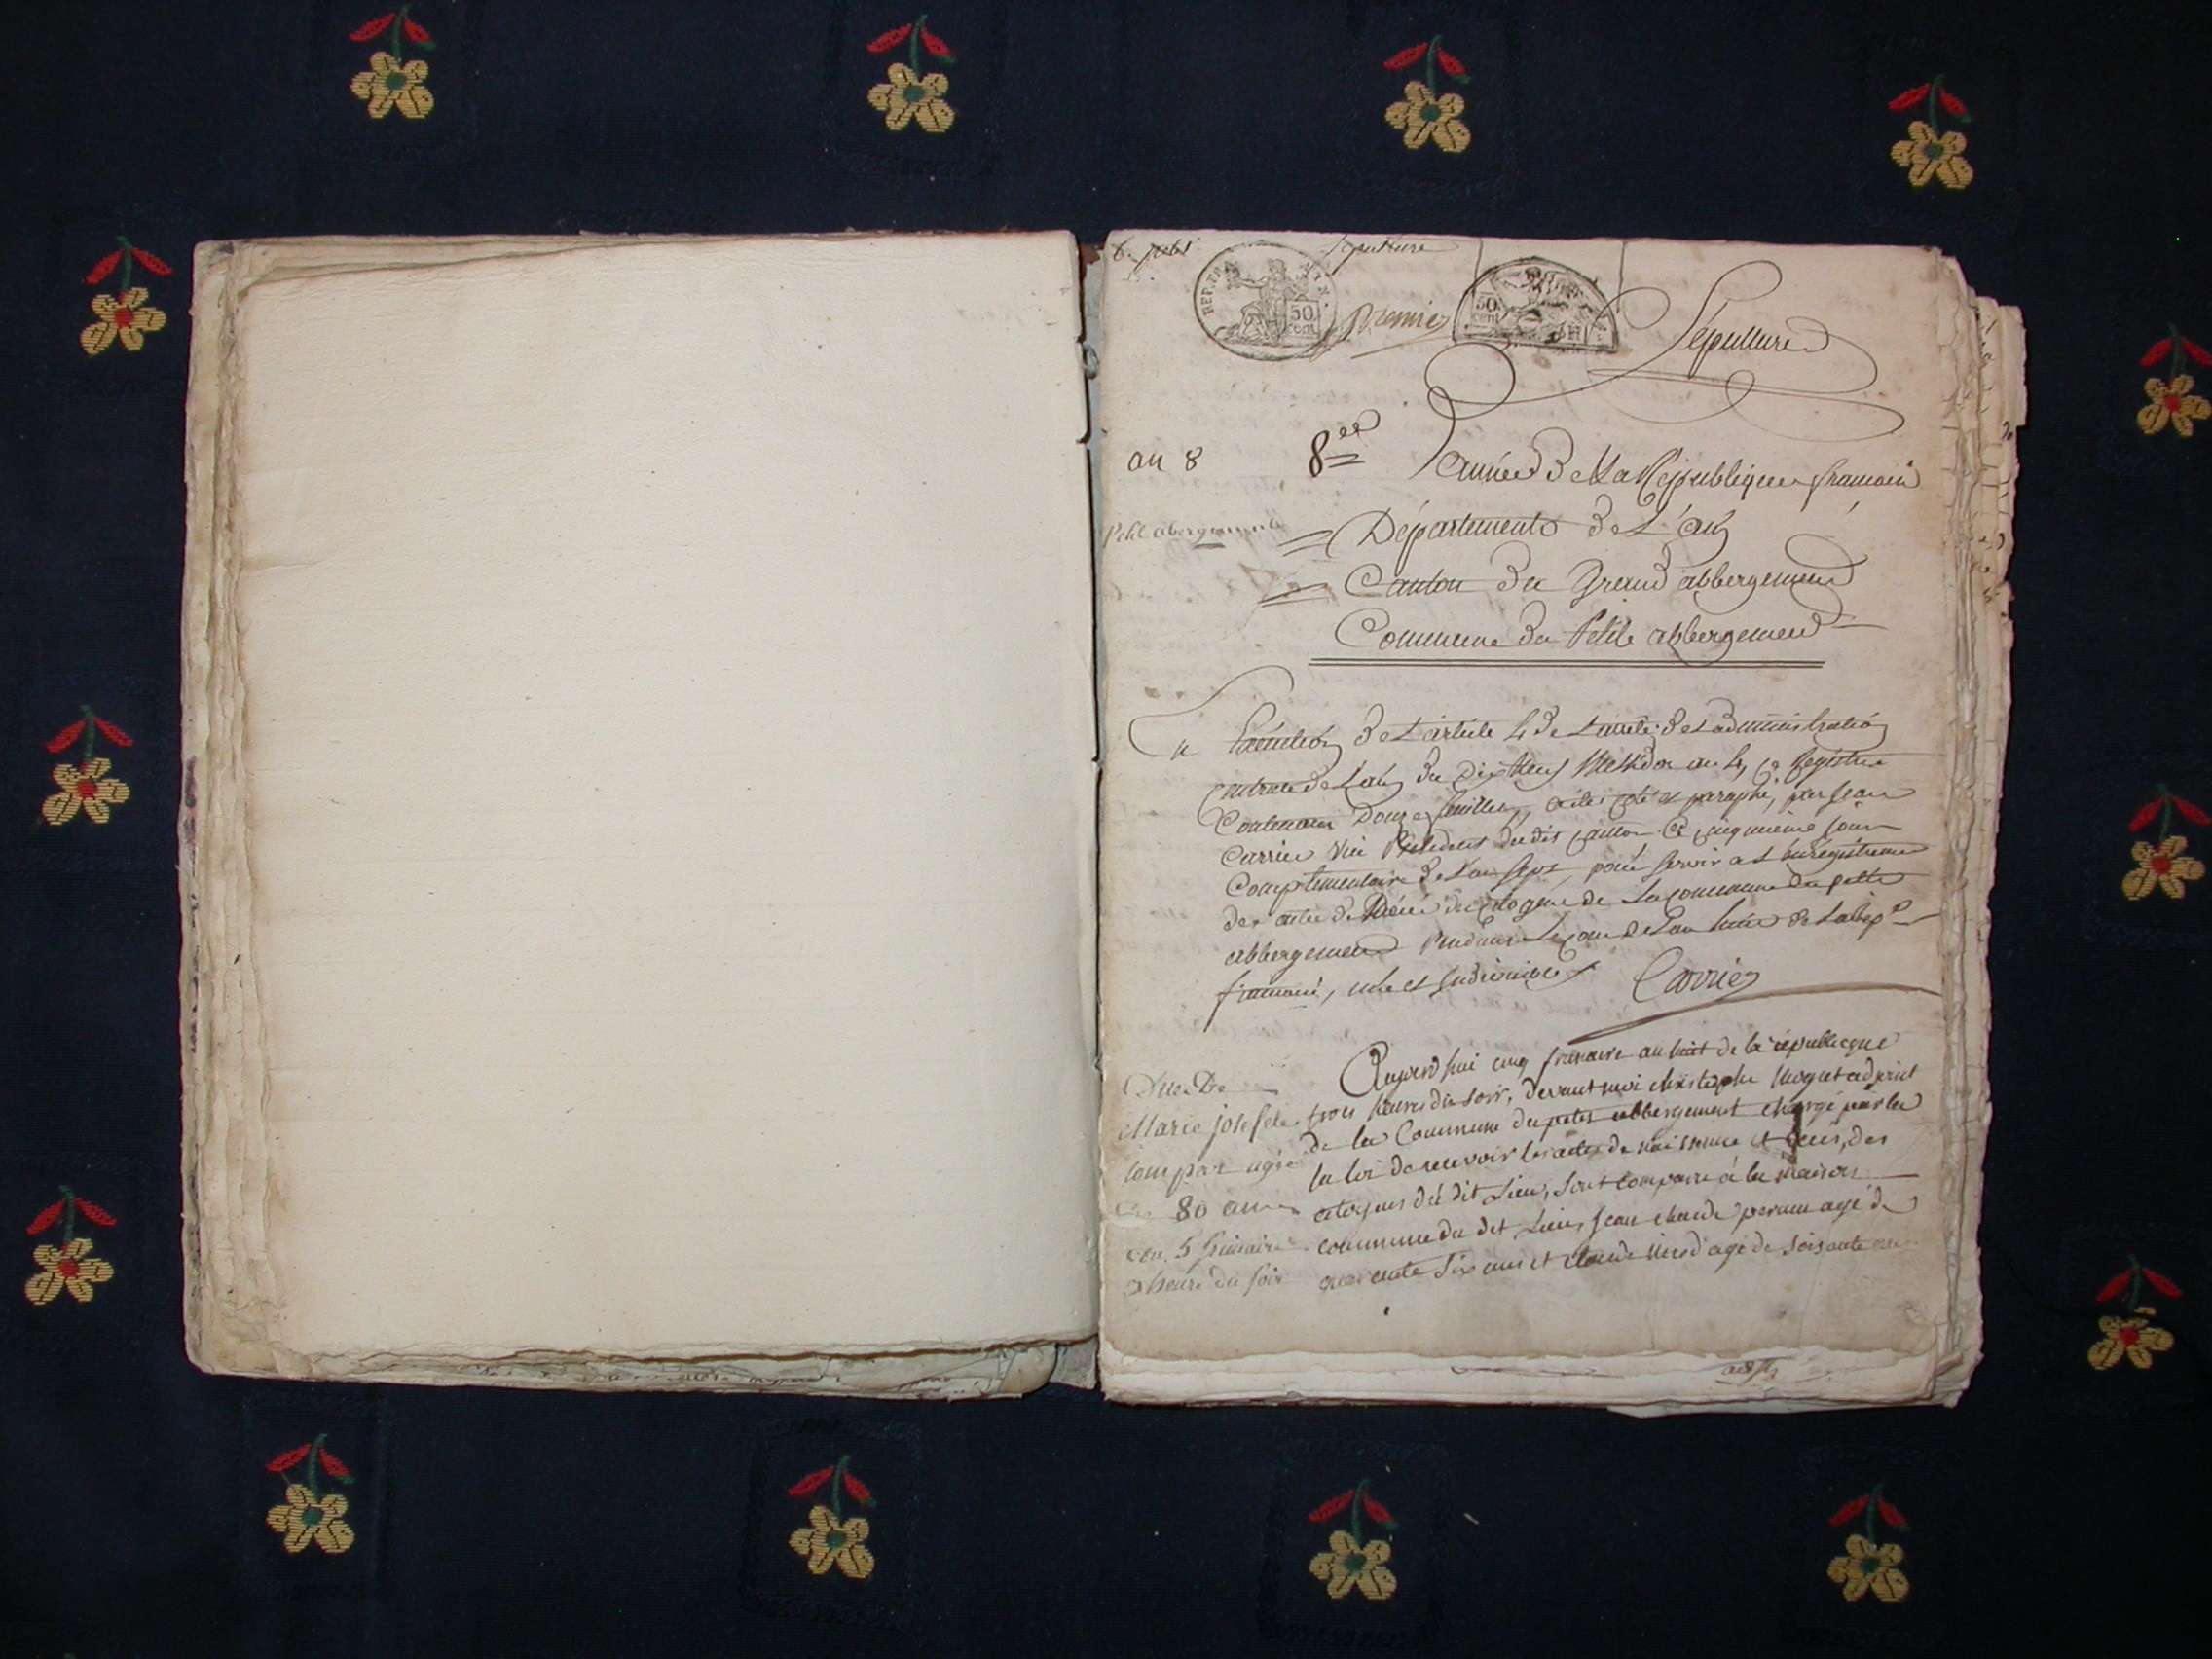 Sepulture
REP. FRA.
50
cent
Premier
50
cent
Sépulture
an 8
8ee
année de La République francaise
Petit abergement
Département de L'ain
Canton du Grand abbergement
Commune du Petit abbergement
En Exécution de L'article 4 de L'arrêté de L'administration
Centrale de L'ain du Dix Neuf Messidor an 4, ce Registre
Contenant Douze feuillets, a été coté et paraphé, par Jean
Carrier vice Président du dit canton ce cinquieme jour
Complementaire de L'an Sept, pour servir a L'enregistrement
des actes de Décès des citoyens de La commune du petit
abbergement Pendant Le cours de L'an huit de La Rep
francaise, une et indivisible
Carrier
Aujourd'hui cinq frimaire an huit de la république
trois heures du soir, devant moi christophe adjoint
de la Commune du petit abbergement chargé par la
la loi de recevoir les actes de naissance et décès, des
citoyens du dit Lieu, sont comparu à la maison
commune du dit Lieu, Jean claude agé de
quarante Six ans et claude agé de soixante
Marie josefete
agée
80 ans
5 frimaire
3 heure du soir